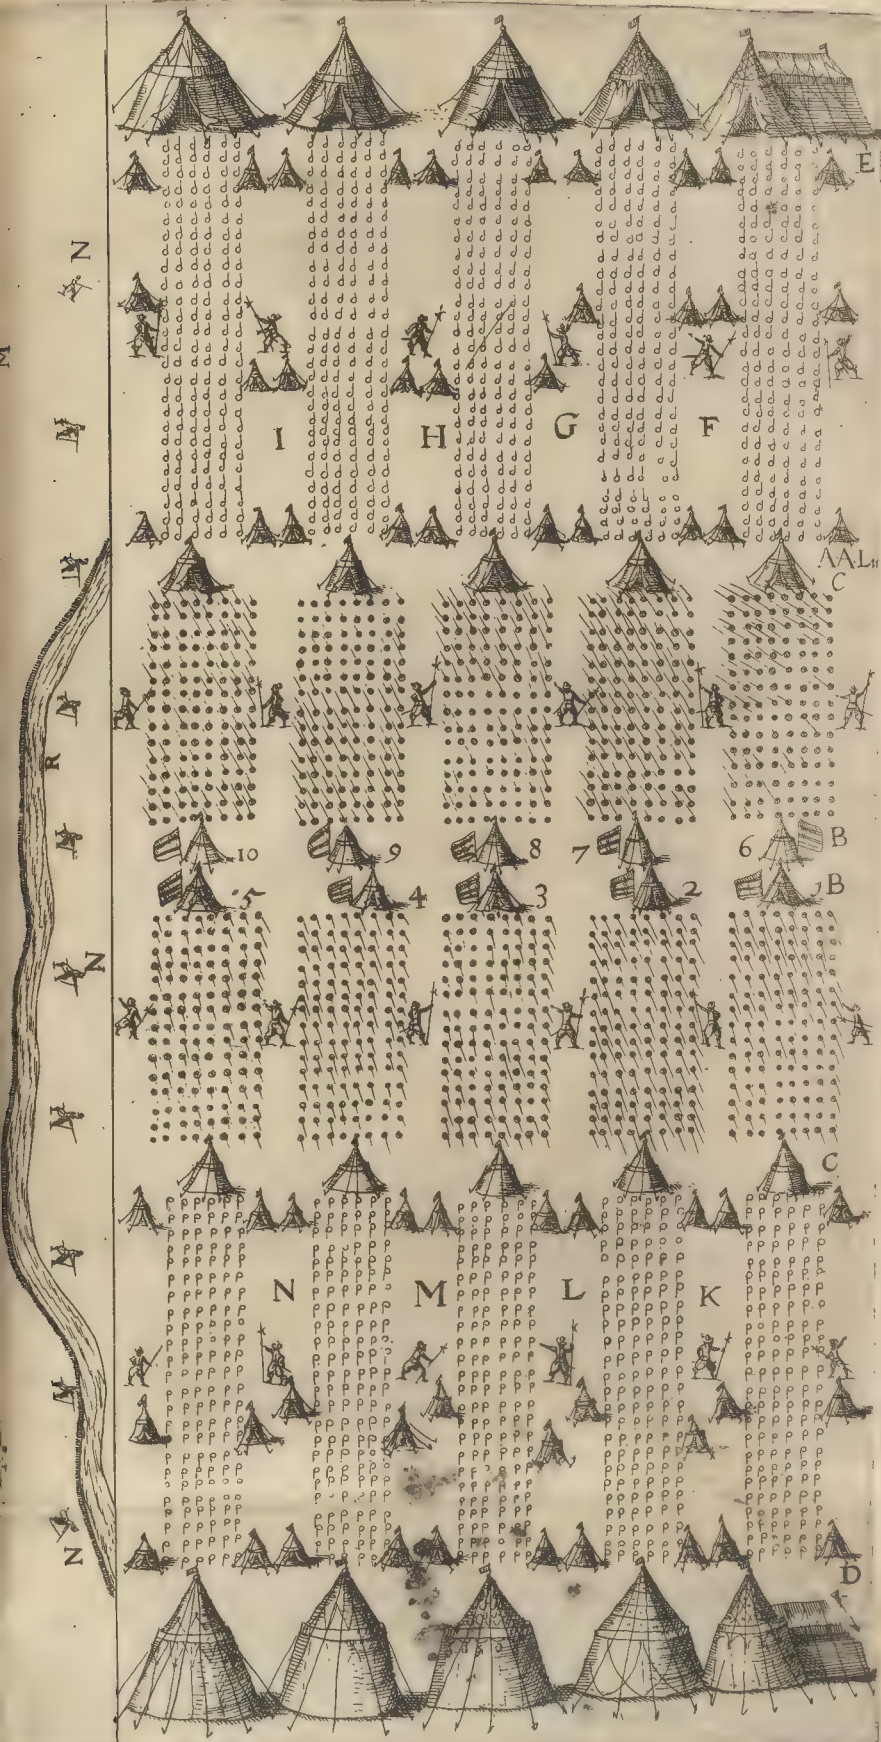 E
N
M
I H G F
C
R
10 9 8 7 6 B
5 4 3 2 B
N
C
N M L K
N
D